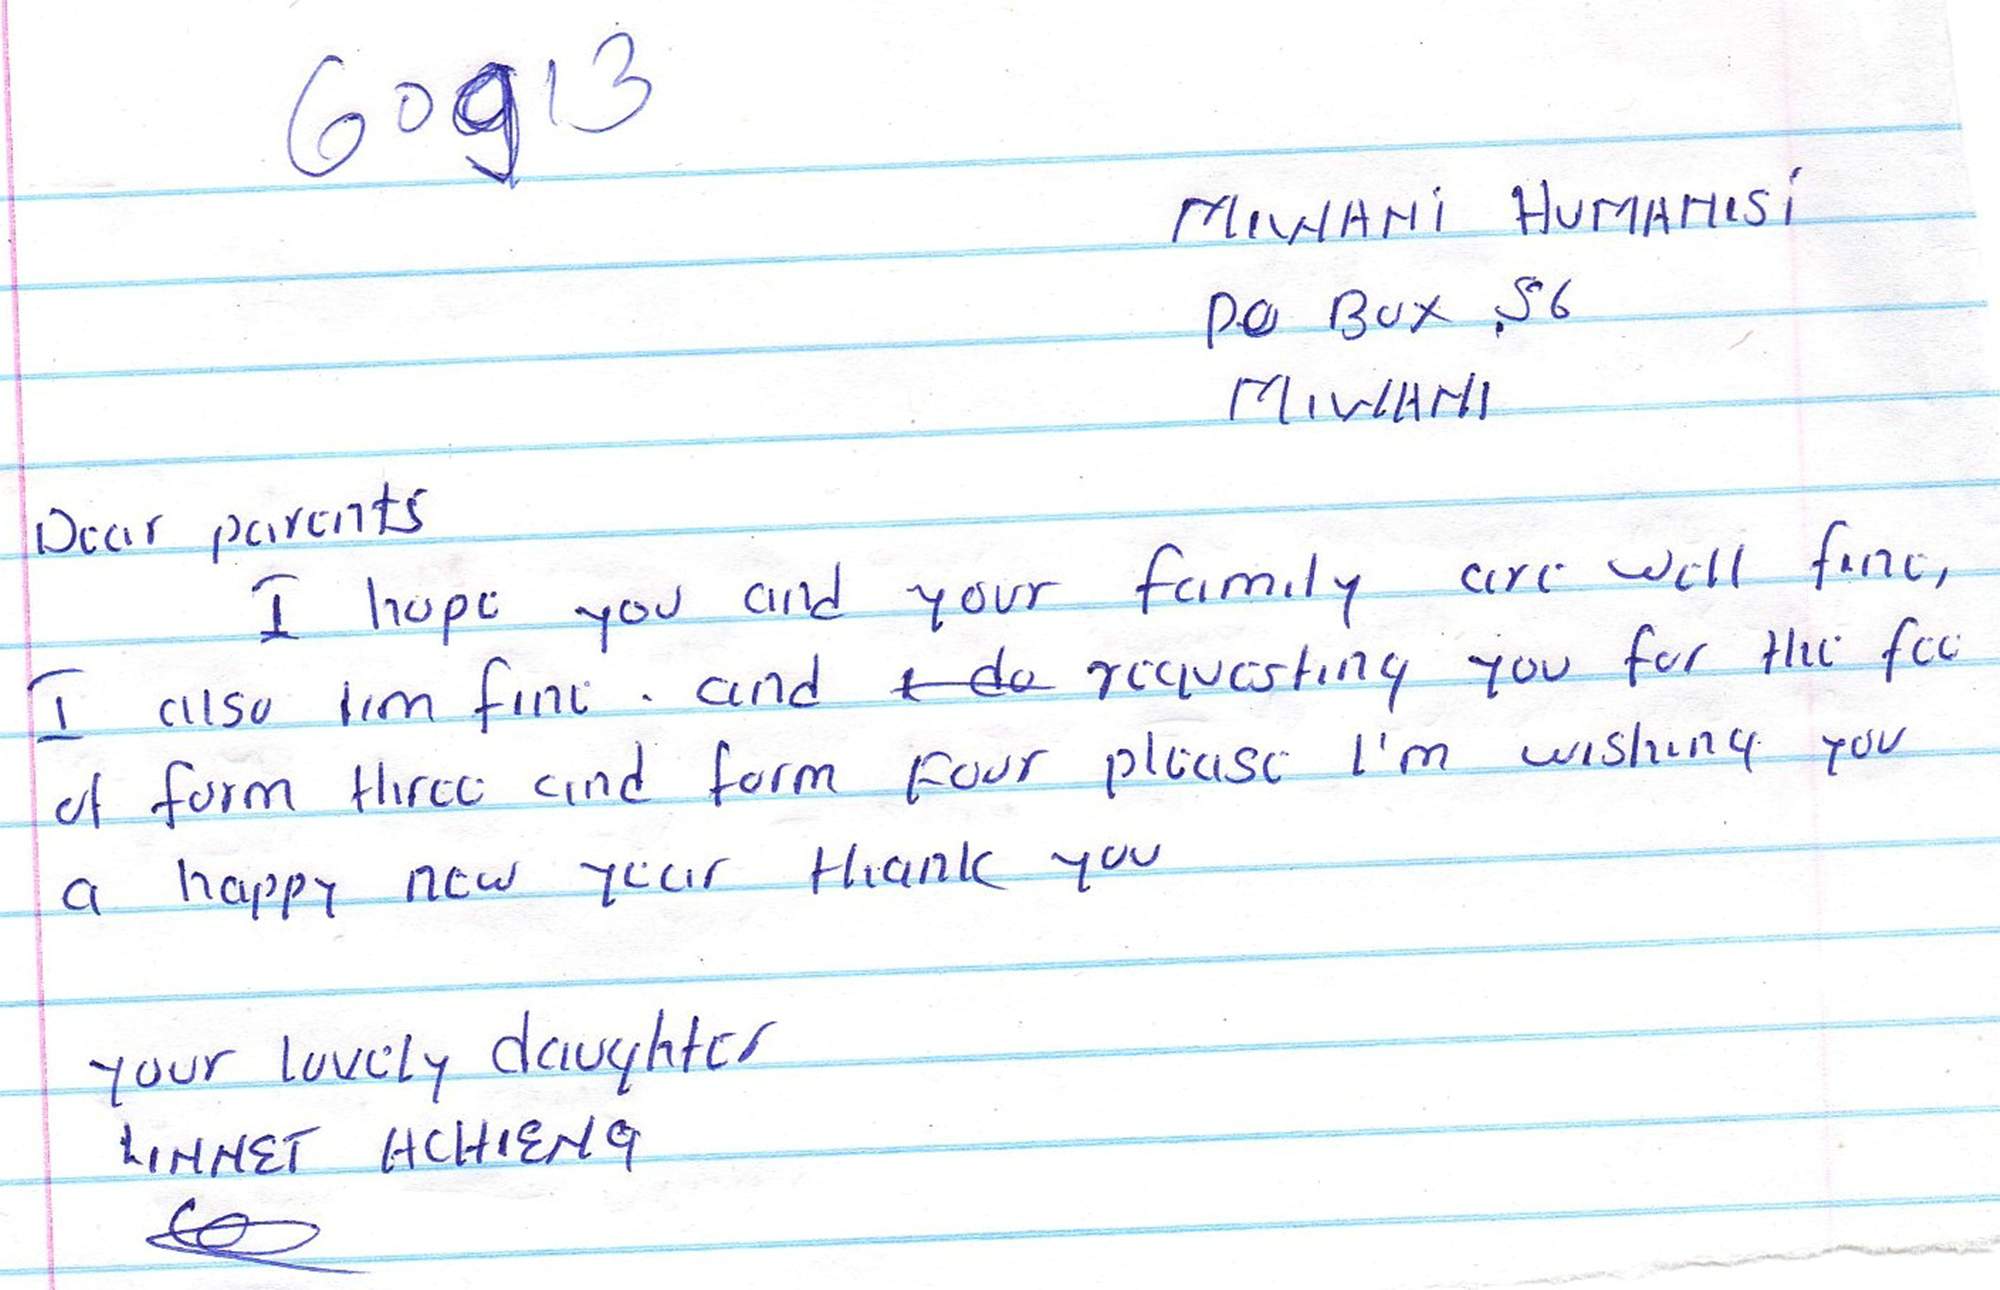 60913
MIWANI HUMANISI
PO BOX 56
MIWANI
Dear parents
I hope you and your family are well fine,
I also iim fine. and requesting you for the fee
of form three and form Four please I'm wishing you
a happy new year thank you
your lovely daughter
LINNET ACHIENG